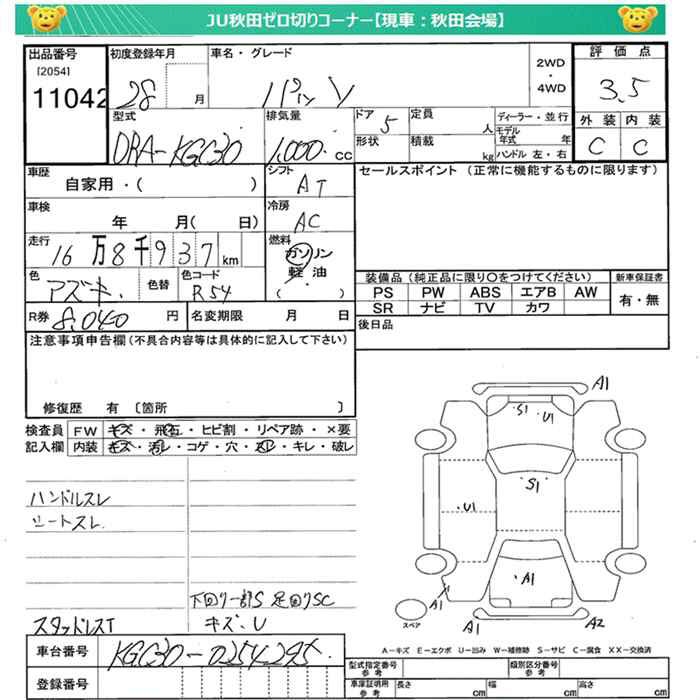 JU秋田ゼロ切りコーナー【現車:秋田会場】
出品番号
[2054]
11042
初度登録年月
28 月
車名・グレード
パッソ
2WD
・
4WD
評価点
3.5
外装 内装
C C
型式
DBA-KGC30
排気量
1,000. cc
ドア
5
形状
定員
人
積載
kg
ディーラー・並行
モデル年式 年
ハンドル 左・右
車歴
自家用・( )
シフト
AT
セールスポイント (正常に機能するものに限ります)
車検
年 月( 日)
冷房
AC
走行
16万8千937km
燃料
ガソリン
軽油
( )
色
アズキ.
色替
色コード
R54
装備品(純正品に限り〇をつけてください)
新車保証書
PS PW ABS エアB AW
有・無
SR ナビ TV カワ
R券
8,040 円
名変期限 月 日
後日品
注意事項申告欄(不具合内容等は具体的に記入して下さい)
修復歴 有 〔箇所 〕
検査員記入欄
FW キズ・飛石・ヒビ割・リペア跡・×要
内装 キズ・汚レ・コゲ・穴・スレ・キレ・破レ
ハンドルスレ
シートスレ
下回り一部S 足回りSC
スタッドレスT
キズ・U
A1
S1 U1
S1
U1
A1
A1
A1
A2
スペア
A-キズ E-エクボ U-凹み W-補修跡 S-サビ C-腐食 XX-交換済
車台番号
KGC30-0254295
登録番号
型式指定番号
参考
類別区分番号
参考
車庫証明用
参考
長さ cm 幅 cm 高さ cm